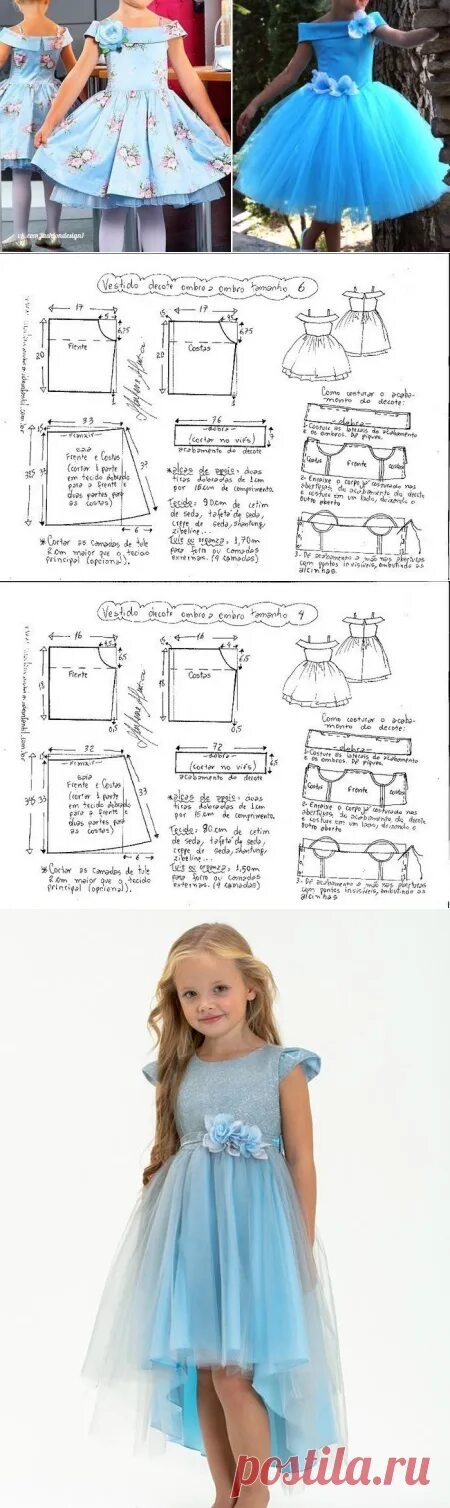 vk.com/fashiondesign1
Vestido decote ombro a ombro tamanho 6
17
5
6,75
20
Frente
17
6,75
20
Costas
33
Franzir
33
saia
Frente e Costas
(cortar 1 parte
em tecido dobrado
para a frente e
duas partes para
as costas)
33
6
* Cortar as camadas de tule
2cm maior que o tecido
principal (opcional).
76
dobra
(cortar no viés)
7
acabamento do decote
*alças de apoio: duas
tiras dobradas de 1cm
por 16cm de comprimento.
Tecido: 90cm de cetim
de seda, tafetá de seda,
crepe de seda, shantung,
zibeline...
Tule ou organza: 1,70m
para forro ou camadas
externas. (4 camadas)
Como costurar o acaba-
mento do decote:
dobra
1- Costure as laterais do acabamento
e os ombros.
Costas
Frente
Costas
2- Encaixe o corpo costurado nas
aberturas do acabamento do decote
e costure em um lado, deixando o
outro aberto
3- Dê acabamento a mão nas aberturas
com pontos invisíveis, embutindo as
alcinhas.
Vestido decote ombro a ombro tamanho 4
16
4,5
6,5
18
Frente
0,5
16
6,5
18
Costas
0,5
32
Franzir
33
saia
Frente e Costas
(cortar 1 parte
em tecido dobrado
para a frente e
duas partes para
as costas)
33
6
* Cortar as camadas de tule
2cm maior que o tecido
principal (opcional).
72
dobra
(cortar no viés)
6,5
acabamento do decote
*alças de apoio: duas
tiras dobradas de 1cm
por 15cm de comprimento.
Tecido: 80cm de cetim
de seda, tafetá de seda,
crepe de seda, shantung,
zibeline...
Tule ou organza: 1,50m
para forro ou camadas
externas. (4 camadas)
Como costurar o acaba-
mento do decote:
dobra
1- Costure as laterais do acabamento
e os ombros.
Costas
Frente
Costas
2- Encaixe o corpo costurado nas
aberturas do acabamento do decote
e costure em um lado, deixando o
outro aberto
3- Dê acabamento a mão nas aberturas
com pontos invisíveis, embutindo as
alcinhas
postila.ru